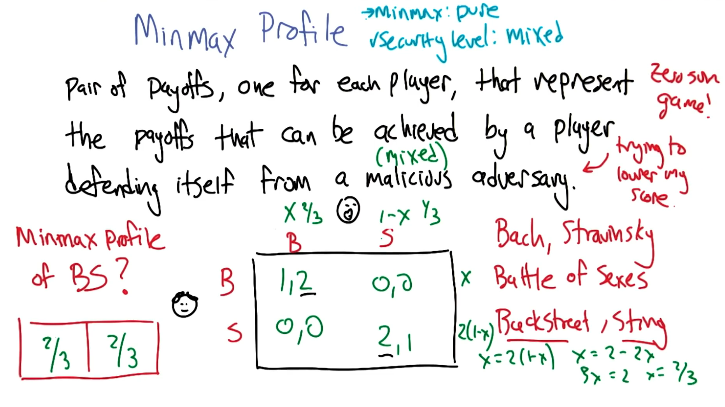 Minmax Profile
→Minmax: pure
✓Security level: mixed
Pair of payoffs, one for each player, that represent
the payoffs that can be achieved by a player
defending itself from a malicious adversary.
(mixed)
Zero sum
game!
trying to
lower my
score.
Minmax profile
of BS?
2/3 2/3
X 2/3 1-X 1/3
B S
B 1,2 0,0 x
S 0,0 2,1 2(1-x)
Bach, Stravinsky
Battle of Sexes
Backstreet, Sting
x=2(1-x) x=2-2x
3x=2 x=2/3